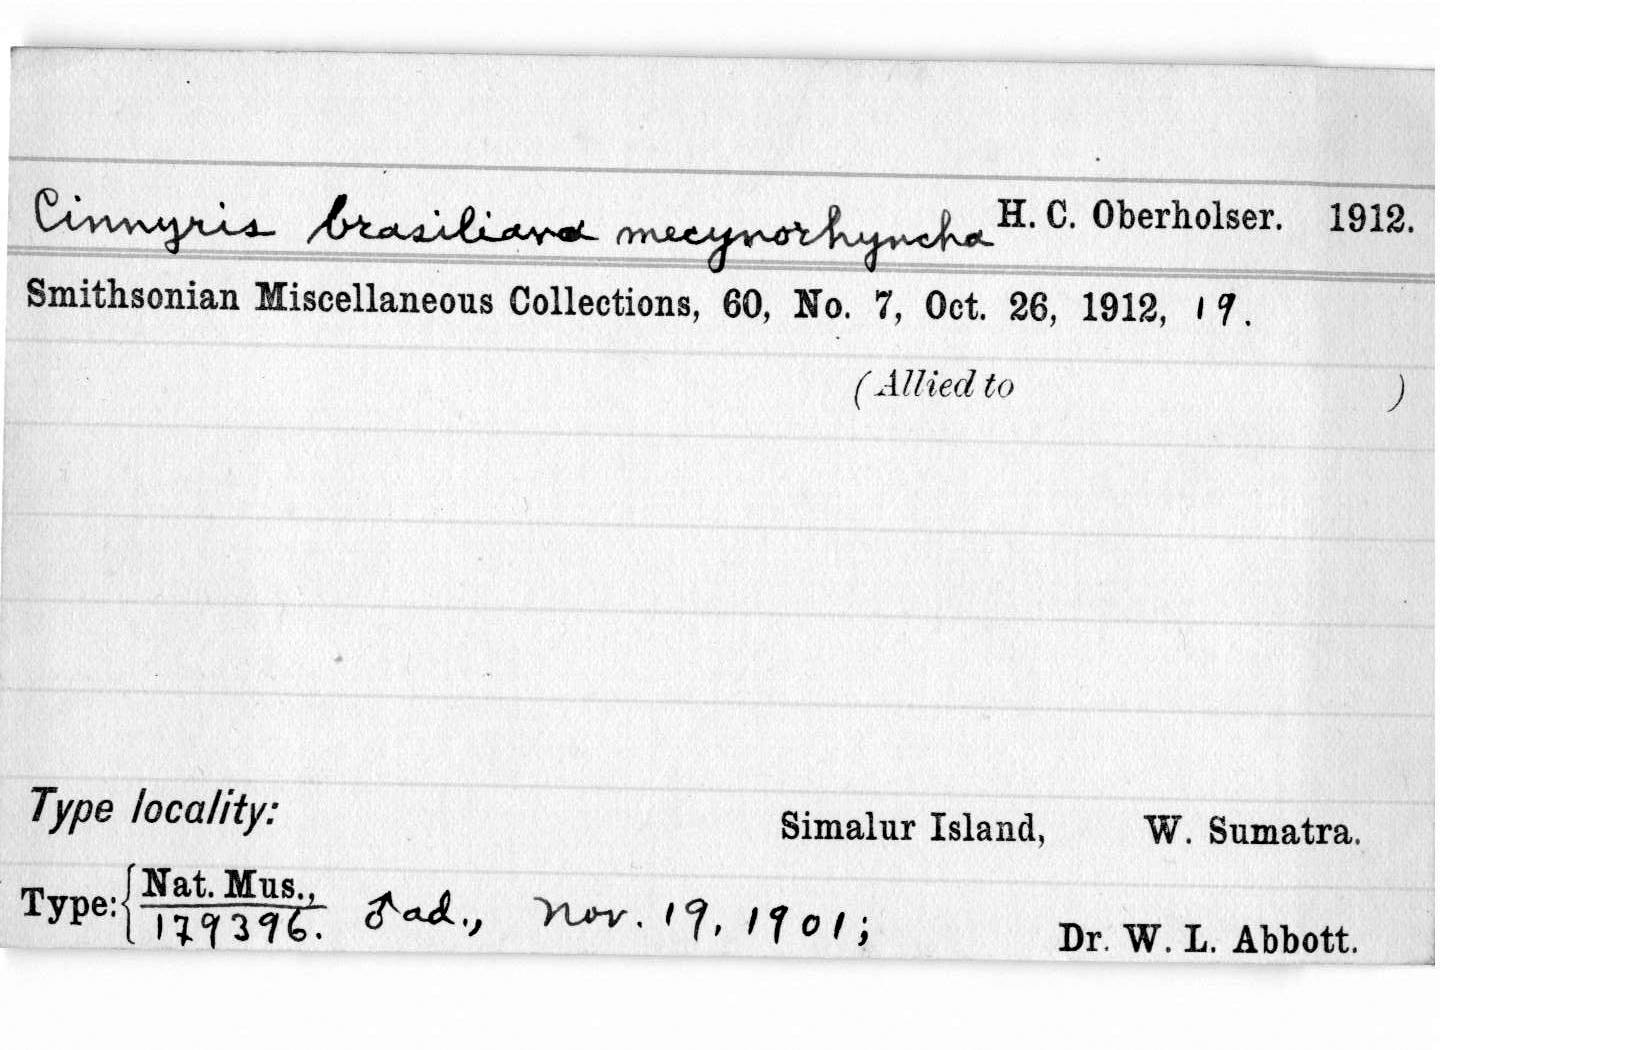 Cinnyris brasiliana mecynorhyncha H. C. Oberholser. 1912.
Smithsonian Miscellaneous Collections, 60, No. 7, Oct. 26, 1912, 19.
(Allied to )
Type locality: Simalur Island, W. Sumatra.
Type: { Nat. Mus., 179396. ♂ad., Nov. 19, 1901; Dr. W. L. Abbott.